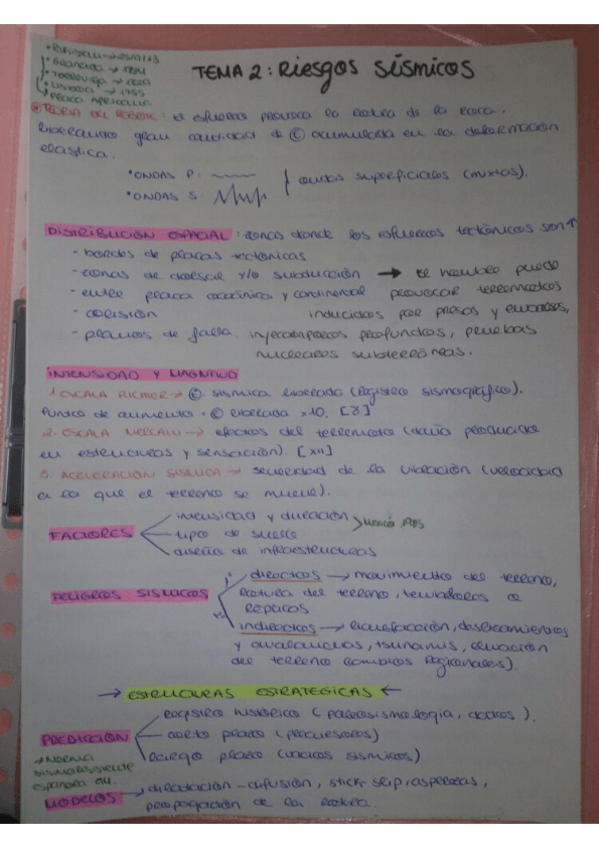 • Granada → 1884
• Torrevieja → 1829
• Lisboa → 1755
TEMA 2: Riesgos sísmicos
TEORÍA DEL REBOTE: el esfuerzo provoca la rotura de la roca,
liberando gran cantidad de Ⓔ acumulada en la deformación
elástica.
• ONDAS P:
• ONDAS S:
ondas superficiales (mixtas).
DISTRIBUCIÓN ESPACIAL: zonas donde los esfuerzos tectónicos son ↑
- bordes de placas tectónicas
- zonas de dorsal y/o subducción → el hombre puede
- entre placa oceánica y continental provocar terremotos
- colisión inducidos por presas y embalses,
- planos de falla. inyecciones profundas, pruebas
nucleares subterráneas.
INTENSIDAD Y MAGNITUD
1. ESCALA RICHTER → Ⓔ sísmica liberada (registro sismográfico).
Punto de aumento = Ⓔ liberada x10. [8]
2. ESCALA MERCALLI → efectos del terremoto (daño producido
en estructuras y sensación). [XII]
3. ACELERACIÓN SÍSMICA → severidad de la vibración (velocidad
a la que el terreno se mueve).
FACTORES
intensidad y duración
tipo de suelo
diseño de infraestructuras
PELIGROS SISMICOS
directos → movimiento del terreno,
rotura del terreno, temblores o
indirectos → licuefacción, deslizamientos
y avalanchas, tsunamis, elevación
del terreno (cambios regionales).
→ ESTRUCTURAS ESTRATEGICAS ←
PREDICCIÓN
registro histórico (paleosismología, datos).
corto plazo (precursores)
largo plazo (vacíos sísmicos)
→ NORMA
SISMORRESISTENTE
ESPAÑOLA
MODELOS → dilatación - difusión, stick slip, asperezas,
propagación de la rotura.